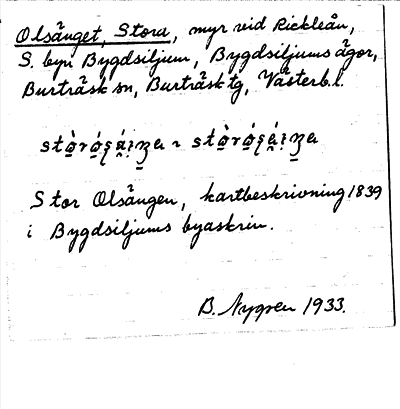 Olsänget, Stora, myr vid Rickleån,
S. byn Bygdsiljum, Bygdsiljums ägor,
Burträsk sn, Burträsk tg, Västerb. l.
Stor Olsängen, kartbeskrivning 1839
i Bygdsiljums byaskrin.
B. Nygren 1933.